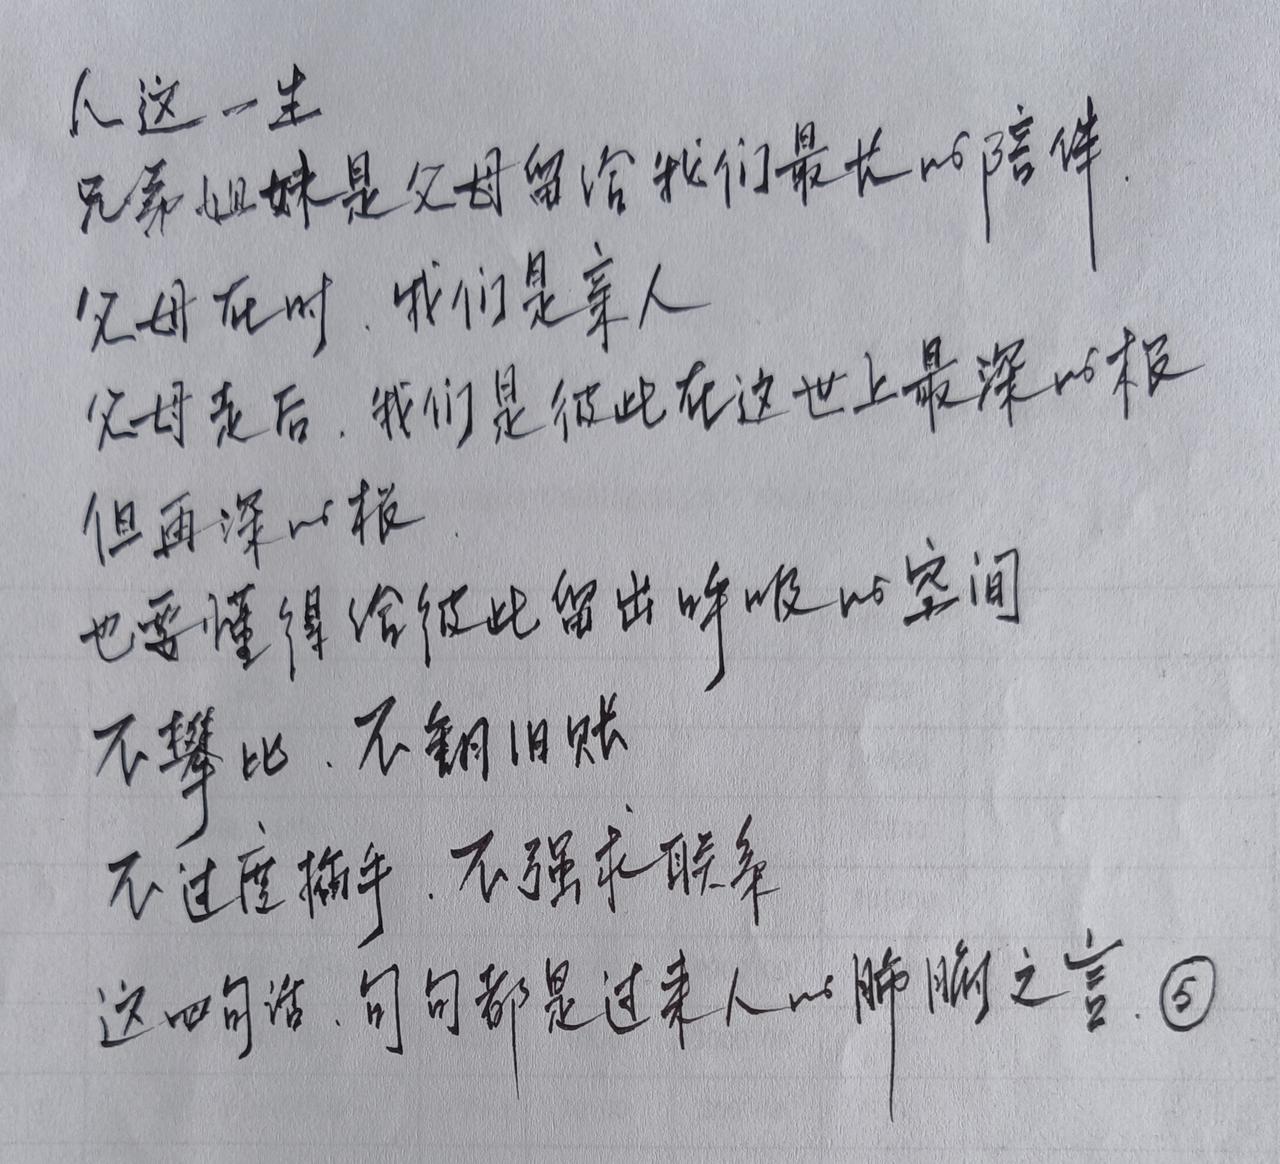 人这一生
兄弟姐妹是父母留给我们最长的陪伴.
父母在时.我们是亲人
父母走后.我们是彼此在这世上最深的根
但再深的根.
也要懂得给彼此留出呼吸的空间
不攀比.不翻旧账
不过度插手.不强求联系
这四句话.句句都是过来人的肺腑之言.⑤